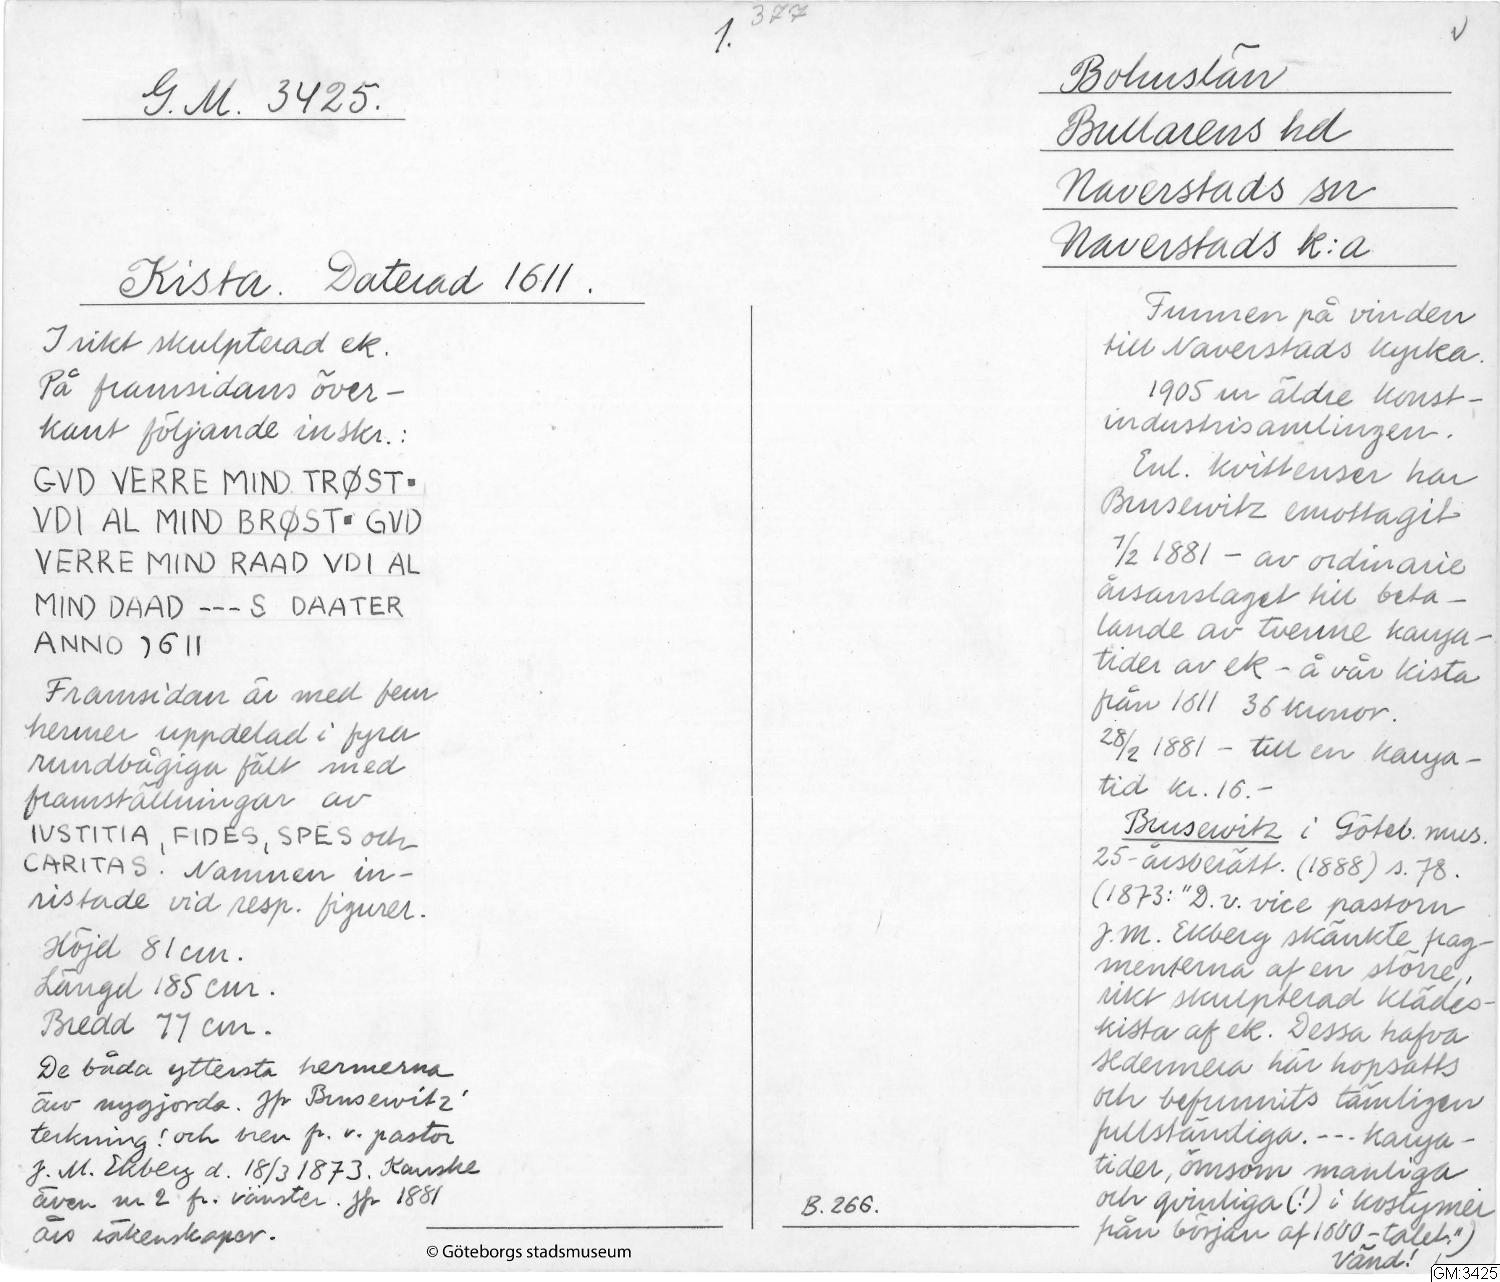 1. 377
V
G. M. 3425.
Kista. Daterad 1611.
I rikt skulpterad ek.
På framsidans över-
kant följande inskr.:
GVD VERRE MIND TRØST▪
VDI AL MIND BRØST▪ GVD
VERRE MIND RAAD VDI AL
MIND DAAD --- S DAATER
ANNO 1611
Framsidan är med fem
hermer uppdelad i fyra
rundbågiga fält med
framställningar av
IVSTITIA, FIDES, SPES och
CARITAS. Namnen in-
ristade vid resp. figurer.
Höjd 81 cm.
Längd 185 cm.
Bredd 77 cm.
De båda yttersta hermerna
äro nygjorda. Jfr Brusewitz'
teckning! och brev fr. v. pastor
J. M. Ekberg d. 18/3 1873. Kanske
även nr 2 fr. vänster. Jfr 1881
års räkenskaper.
© Göteborgs stadsmuseum
B. 266.
Bohuslän
Bullarens hd
Naverstads sn
Naverstads k:a
Funnen på vinden
till Naverstads kyrka.
1905 ur äldre konst-
industrisamlingen.
Enl. kvittenser har
Brusewitz emottagit
7/2 1881 - av ordinarie
årsanslaget till beta-
lande av tvenne karya-
tider av ek - å vår kista
från 1611 36 kronor.
28/2 1881 - till en karya-
tid kr. 16.-
Brusewitz i Göteb. mus.
25-årsberätt. (1888) s. 78.
(1873: "D. v. vice pastorn
J. M. Ekberg skänkte frag-
menterna af en större,
rikt skulpterad klädes-
kista af ek. Dessa hafva
sedermera här hopsatts
och befunnits tämligen
fullständiga. --- Karya-
tider, ömsom manliga
och qvinliga (!) i kostymer
från början af 1600-talet.")
Vänd!
GM:3425